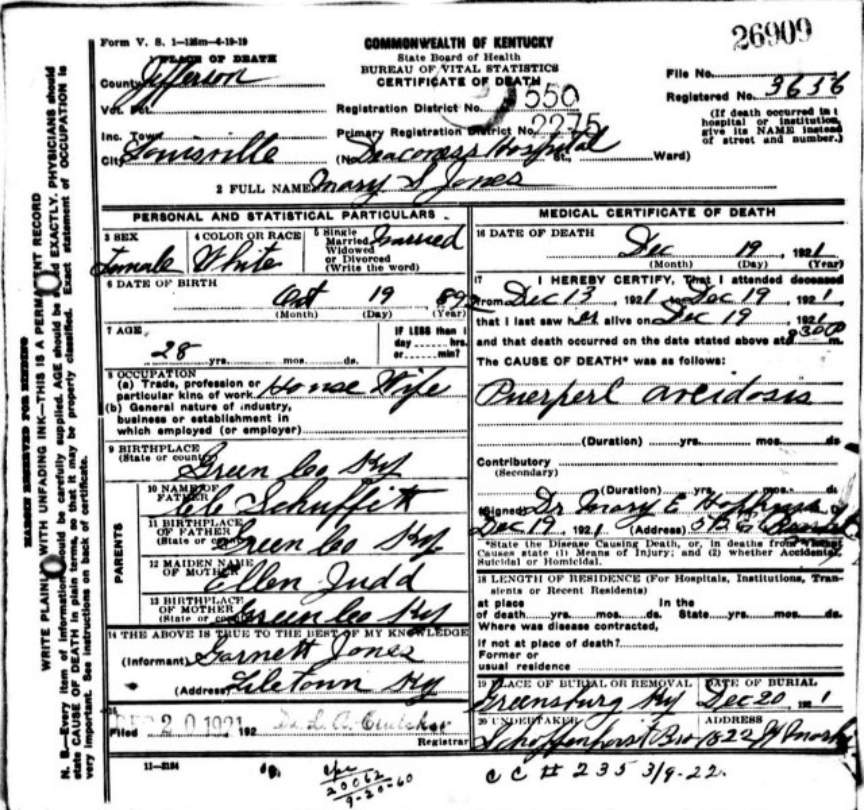 26909
Form V. S. 1—125m—4-19-19
COMMONWEALTH OF KENTUCKY
State Board of Health
BUREAU OF VITAL STATISTICS
CERTIFICATE OF DEATH
PLACE OF DEATH
County Jefferson
Vot. Pct.
Inc. Town
City Louisville
Registration District No. 550
Primary Registration District No. 2275
(No. Deaconess Hospital St., Ward)
File No.
Registered No. 3636
(If death occurred in a
hospital or institution,
give its NAME instead
of street and number.)
2 FULL NAME Mary S Jones
PERSONAL AND STATISTICAL PARTICULARS
3 SEX Female
4 COLOR OR RACE White
5 Single
Married
Widowed
or Divorced
(Write the word)
Married
6 DATE OF BIRTH
Oct 19 1892
(Month) (Day) (Year)
7 AGE
28 yrs. mos. ds.
If LESS than 1
day hrs.
or min?
8 OCCUPATION
(a) Trade, profession or
particular kind of work House Wife
(b) General nature of industry,
business or establishment in
which employed (or employer)
9 BIRTHPLACE
(State or country) Green Co Ky
PARENTS
10 NAME OF
FATHER
11 BIRTHPLACE
OF FATHER
(State or country) Green Co Ky.
12 MAIDEN NAME
OF MOTHER Ellen Judd
13 BIRTHPLACE
OF MOTHER
(State or country) Green Co Ky
14 THE ABOVE IS TRUE TO THE BEST OF MY KNOWLEDGE
(Informant) Garnett Jones
(Address) Liletown Ky
15
Filed DEC 20 1921 192
Registrar
MEDICAL CERTIFICATE OF DEATH
16 DATE OF DEATH
Dec 19, 1921
(Month) (Day) (Year)
17 I HEREBY CERTIFY, That I attended deceased
from Dec 13, 1921, to Dec 19, 1921
that I last saw her alive on Dec 19, 1921
and that death occurred on the date stated above at 830 m.
The CAUSE OF DEATH* was as follows:
Puerperl acidosis
(Duration) yrs. mos. ds
Contributory
(Secondary)
(Duration) yrs. mos. ds
(Signed) Dr Mary E
Dec 19, 1921 (Address)
*State the Disease Causing Death, or, in deaths from Violent
Causes state (1) Means of Injury; and (2) whether Accidental,
Suicidal or Homicidal.
18 LENGTH OF RESIDENCE (For Hospitals, Institutions, Tran-
sients or Recent Residents)
at place In the
of death yrs. mos. ds. State yrs. mos. ds.
Where was disease contracted,
if not at place of death?
Former or
usual residence
19 PLACE OF BURIAL OR REMOVAL
Greensburg Ky
DATE OF BURIAL
Dec 20, 1921
20 UNDERTAKER
ADDRESS
11—3184
20062
9-20-60
CC # 235 3/9-22.
MARGIN RESERVED FOR BINDING
WRITE PLAINLY WITH UNFADING INK—THIS IS A PERMANENT RECORD
N. B.—Every item of information should be carefully supplied. AGE should be stated EXACTLY. PHYSICIANS should
state CAUSE OF DEATH in plain terms, so that it may be properly classified. Exact statement of OCCUPATION is
very important. See instructions on back of certificate.